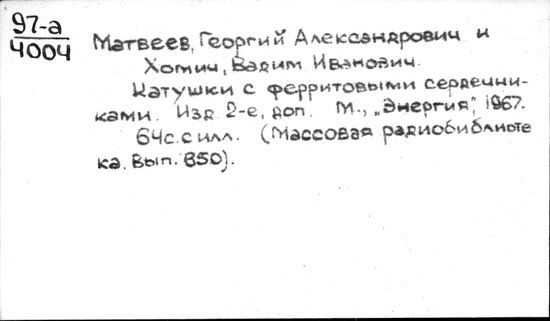 97-а
4004
Матвеев, Георгий Александрович и
Хомич, Вадим Иванович.
Катушки с ферритовыми сердечни-
ками. Изд. 2-е, доп. М., „Энергия", 1967.
64с. с илл. (Массовая радиобиблиоте
ка. Вып. 650).